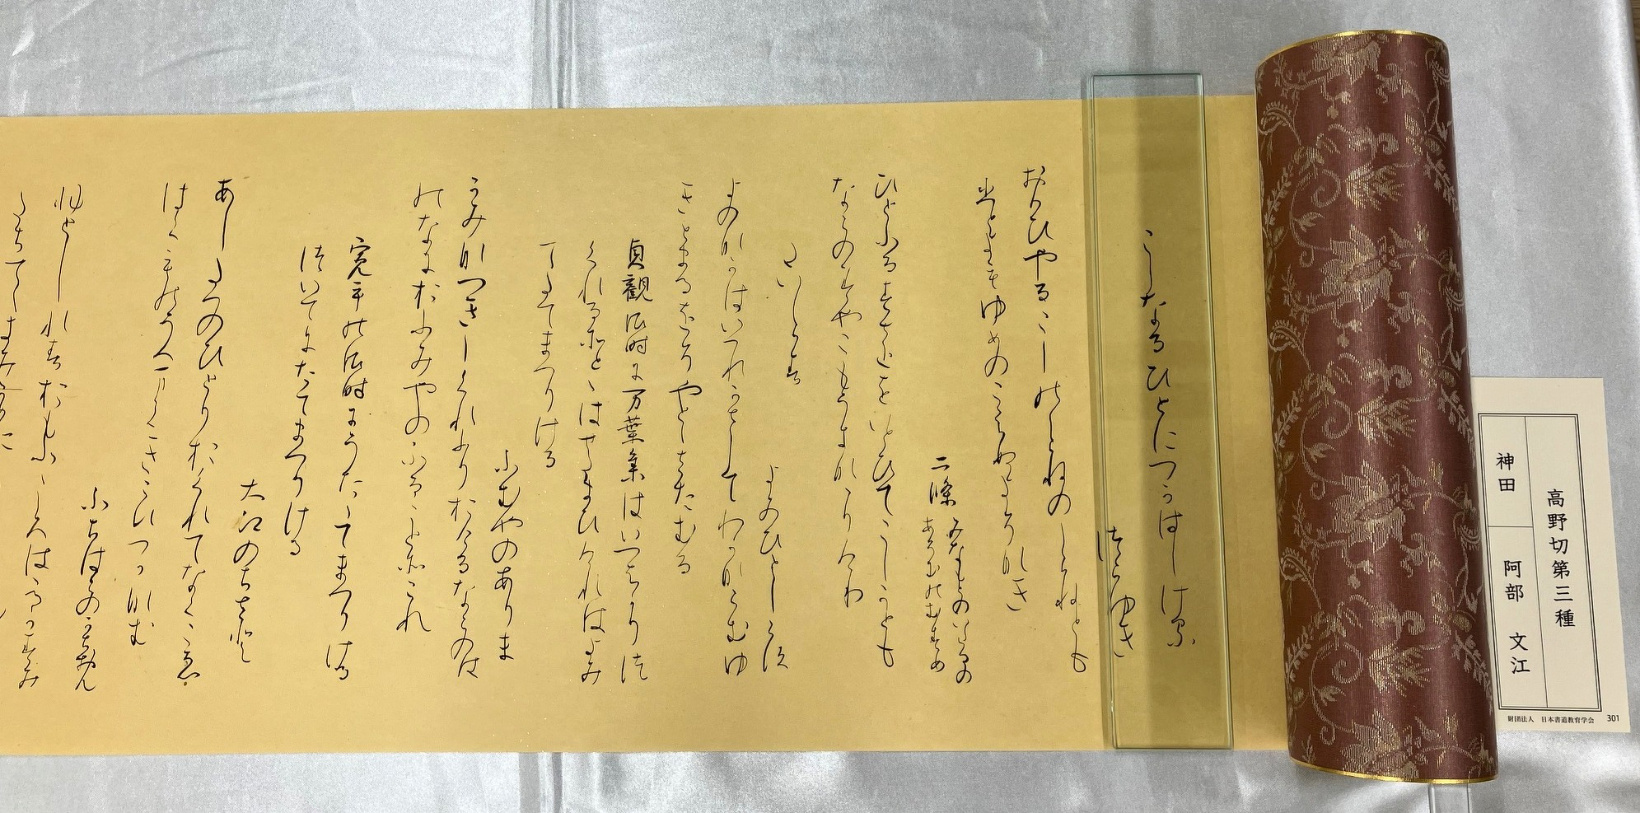 こしなるひとにつかはしける
つらゆき
おもひやるこしのしらねのしらねとも
ひとよもゆめのこえぬよそなき
二條
みなもとのいたるの
あそむのむすめ
ひとふるすさとをいとひてこしかとも
ならのみやこもうきななりけり
たいしらす
よみひとしらす
よのなかはいつれかさしてわかならむゆ
きとまるをそやとゝさたむる
貞観御時に万葉集はいつはかりつ
くれるそとゝはせたまひけれはよみ
てたてまつりける
ふむやのありすゑ
かみなつきしくれふりおけるならのは
のなにおふみやのふることそこれ
寛平の御時にうたたてまつりける
ついてにたてまつりける
大江のちさと
あしたつのひとりおくれてなくこゑは
くものうへまてきこえつかなむ
ふちはらのかちおん
ひとしれすおもふこゝろははるかすみ
高野切第三種
神田 阿部 文江
財団法人 日本書道教育学会 301